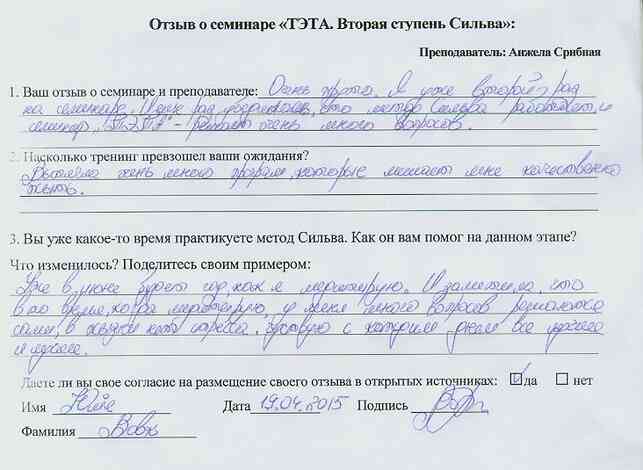 Отзыв о семинаре «ТЭТА. Вторая ступень Сильва»:
Преподаватель: Анжела Срибная
1. Ваш отзыв о семинаре и преподавателе: Очень круто. Я уже второй раз
на семинаре. Еще раз убедилась, что метод Сильва работает, и
семинар "ТЭТА" - решает очень много вопросов.
2. Насколько тренинг превзошел ваши ожидания?
очень много програм, которые мешают мне качественно
жить.
3. Вы уже какое-то время практикуете метод Сильва. Как он вам помог на данном этапе?
Что изменилось? Поделитесь своим примером:
Уже в июне будет год как я медитирую. И заметила, что
в то время, когда медитирую, у меня много вопросов решаются
сами, в жизни нет стресса. Чувствую с каждым днем все лучше
и лучше.
Даете ли вы свое согласие на размещение своего отзыва в открытых источниках: ☑ да ☐ нет
Имя Юлия Дата 19.04.2015 Подпись
Фамилия Вовк